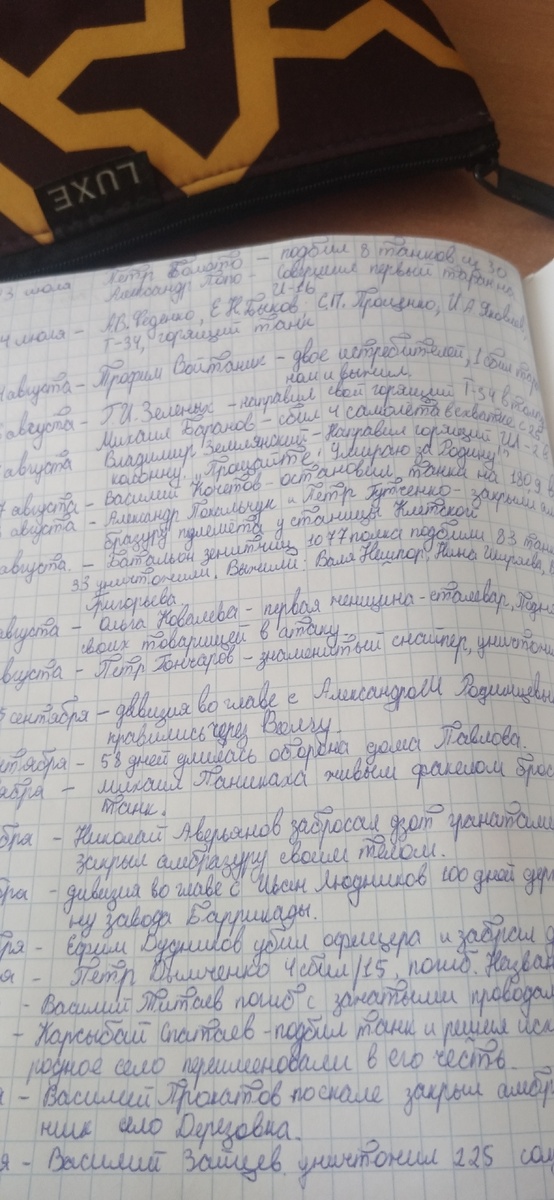 LUXE
3 июля Петр Болото - подбил 8 танков из 30
Александр Попо - Совершил первый таран на
И-16
4 июля - А.В. Феденко, Е.Н Быков, С.П. Проценко, И А Яковлев,
Т-34, горящий танк
августа - Трофим Войтаник - двое истребителей, 1 был
ном и выжил.
августа - Г.И. Зеленых - направил свой горящий Т-34 в
Михаил Баранов - сбил 4 самолёта
августа Владимир Землянский - Направил горящий ИЛ-2 в
колонну. "Прощайте! Умираю за Родину!"
7 августа - Василий Кочетов - остановил танка на
августа - Александр Покальчук и Петр Гутченко - закрыли
бразуру пулемёта у станицы Клетской
августа. - Батальон зенитчиц 1077 полка подбили 83
33 уничтожили. Выжили: Валя Нешпор, Нина Ширяева,
Григорьева
августа - Ольга Ковалева - первая женщина - сталевар,
своих товарищей в атаку
августа - Петр Гончаров - знаменитый снайпер,
сентября - дивизия во главе с Александром Родимцевым
правились через Волгу.
нтября - 58 дней длилась оборона дома Павлова.
ября - михаил Паникаха живым факелом брос
танк.
бря - Николай Аверьянов забросал дзот гранатами
закрыл амбразуру своим телом.
бря - дивизия во главе с Иван Людников 100 дней
ну завода Баррикады.
ря - Ефим Дудников убил офицера и забрал
я - Петр Дымченко 4 сбил/15, погиб. Назван
- Василий Титаев погиб с зажатыми провода
- Карсыбай Спатаев - подбил танк и решил
родное село переименовали в его честь.
я - Василий Прокатов поскале закрыл амбр
ник село Дерезовка.
я - Василий Зайцев уничтожил 225